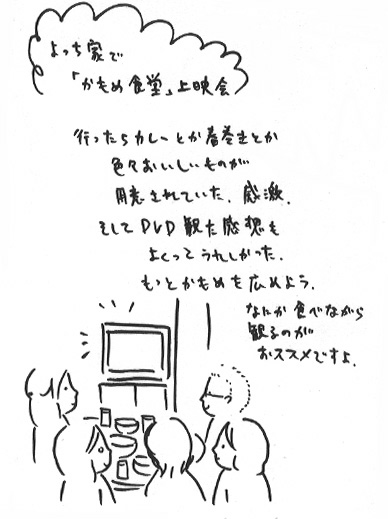 よっち家で
「かもめ食堂」上映会
行ったらカレーとか春巻きとか
色々おいしいものが
用意されていた。感激。
そしてDVD観た感想も
よくってうれしかった。
もっとかもめを広めよう。
なにか食べながら
観るのが
おススメですよ。